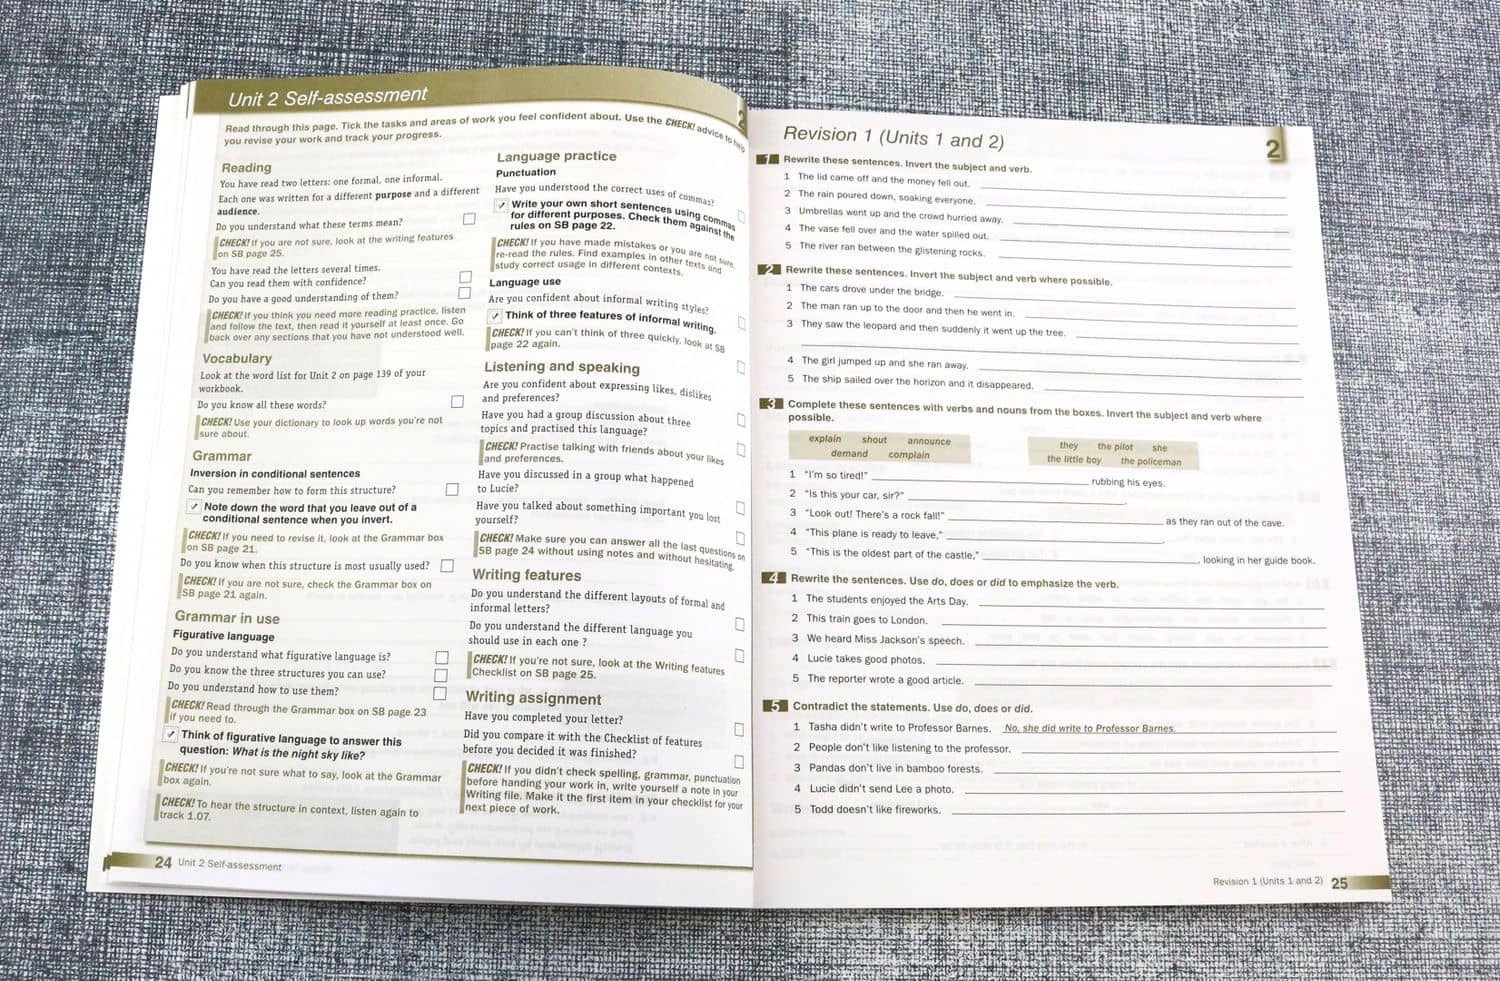 Unit 2 Self-assessment
2
Read through this page. Tick the tasks and areas of work you feel confident about. Use the CHECK! advice to help
you revise your work and track your progress.
Reading
You have read two letters: one formal, one informal.
Each one was written for a different purpose and a different
audience.
Do you understand what these terms mean?
CHECK! If you are not sure, look at the writing features
on SB page 25.
You have read the letters several times.
Can you read them with confidence?
Do you have a good understanding of them?
CHECK! If you think you need more reading practice, listen
and follow the text, then read it yourself at least once. Go
back over any sections that you have not understood well.
Vocabulary
Look at the word list for Unit 2 on page 139 of your
workbook.
Do you know all these words?
CHECK! Use your dictionary to look up words you're not
sure about.
Grammar
Inversion in conditional sentences
Can you remember how to form this structure?
Note down the word that you leave out of a
conditional sentence when you invert.
CHECK! If you need to revise it, look at the Grammar box
on SB page 21.
Do you know when this structure is most usually used?
CHECK! If you are not sure, check the Grammar box on
SB page 21 again.
Grammar in use
Figurative language
Do you understand what figurative language is?
Do you know the three structures you can use?
Do you understand how to use them?
CHECK! Read through the Grammar box on SB page 23
if you need to.
Think of figurative language to answer this
question: What is the night sky like?
CHECK! If you're not sure what to say, look at the Grammar
box again.
CHECK! To hear the structure in context, listen again to
track 1.07.
Language practice
Punctuation
Have you understood the correct uses of commas?
Write your own short sentences using commas
for different purposes. Check them against the
rules on SB page 22.
CHECK! If you have made mistakes or you are not sure,
re-read the rules. Find examples in other texts and
study correct usage in different contexts.
Language use
Are you confident about informal writing styles?
Think of three features of informal writing.
CHECK! If you can't think of three quickly, look at SB
page 22 again.
Listening and speaking
Are you confident about expressing likes, dislikes
and preferences?
Have you had a group discussion about three
topics and practised this language?
CHECK! Practise talking with friends about your likes
and preferences.
Have you discussed in a group what happened
to Lucie?
Have you talked about something important you lost
yourself?
CHECK! Make sure you can answer all the last questions on
SB page 24 without using notes and without hesitating.
Writing features
Do you understand the different layouts of formal and
informal letters?
Do you understand the different language you
should use in each one ?
CHECK! If you're not sure, look at the Writing features
Checklist on SB page 25.
Writing assignment
Have you completed your letter?
Did you compare it with the Checklist of features
before you decided it was finished?
CHECK! If you didn't check spelling, grammar, punctuation
before handing your work in, write yourself a note in your
Writing file. Make it the first item in your checklist for your
next piece of work.
24 Unit 2 Self-assessment
Revision 1 (Units 1 and 2)
2
1 Rewrite these sentences. Invert the subject and verb.
1 The lid came off and the money fell out.
2 The rain poured down, soaking everyone.
3 Umbrellas went up and the crowd hurried away.
4 The vase fell over and the water spilled out.
5 The river ran between the glistening rocks.
2 Rewrite these sentences. Invert the subject and verb where possible.
1 The cars drove under the bridge.
2 The man ran up to the door and then he went in.
3 They saw the leopard and then suddenly it went up the tree.
4 The girl jumped up and she ran away.
5 The ship sailed over the horizon and it disappeared.
3 Complete these sentences with verbs and nouns from the boxes. Invert the subject and verb where
possible.
explain shout announce
demand complain
they the pilot she
the little boy the policeman
1 "I'm so tired!" rubbing his eyes.
2 "Is this your car, sir?" .
3 "Look out! There's a rock fall!" as they ran out of the cave.
4 "This plane is ready to leave," .
5 "This is the oldest part of the castle," , looking in her guide book.
4 Rewrite the sentences. Use do, does or did to emphasize the verb.
1 The students enjoyed the Arts Day.
2 This train goes to London.
3 We heard Miss Jackson's speech.
4 Lucie takes good photos.
5 The reporter wrote a good article.
5 Contradict the statements. Use do, does or did.
1 Tasha didn't write to Professor Barnes. No, she did write to Professor Barnes.
2 People don't like listening to the professor.
3 Pandas don't live in bamboo forests.
4 Lucie didn't send Lee a photo.
5 Todd doesn't like fireworks.
Revision 1 (Units 1 and 2) 25